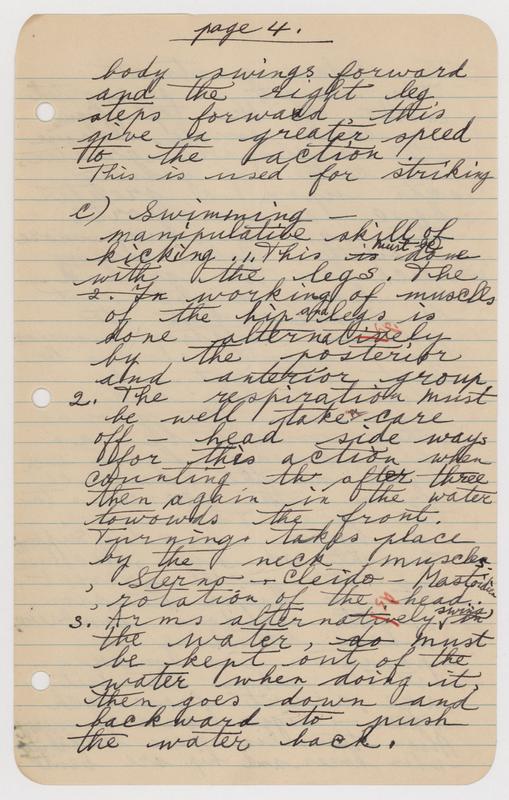 page 4.
body swings forward
and the right leg
steps forward, this
give a greater speed
to the action.
This is used for striking
c) Swimming -
manipulative skill of
kicking. 1. This is must be done
with the legs. The
2. In working of muscles
of the hip and legs is
done alternatively
by the posterior
and anterior group,
2. The respiration must
be well take care
off - head side ways
for this action when
counting the after three
then again in the water
towowds the front.
Turnings takes place
by the neck muscles.
, Sterno - Cleido - Mastoiden
, rotation of the head.
3. Arms alternatively swing in
the water, so must
be kept out of the
water when doing it,
then goes down and
backward to push
the water back.